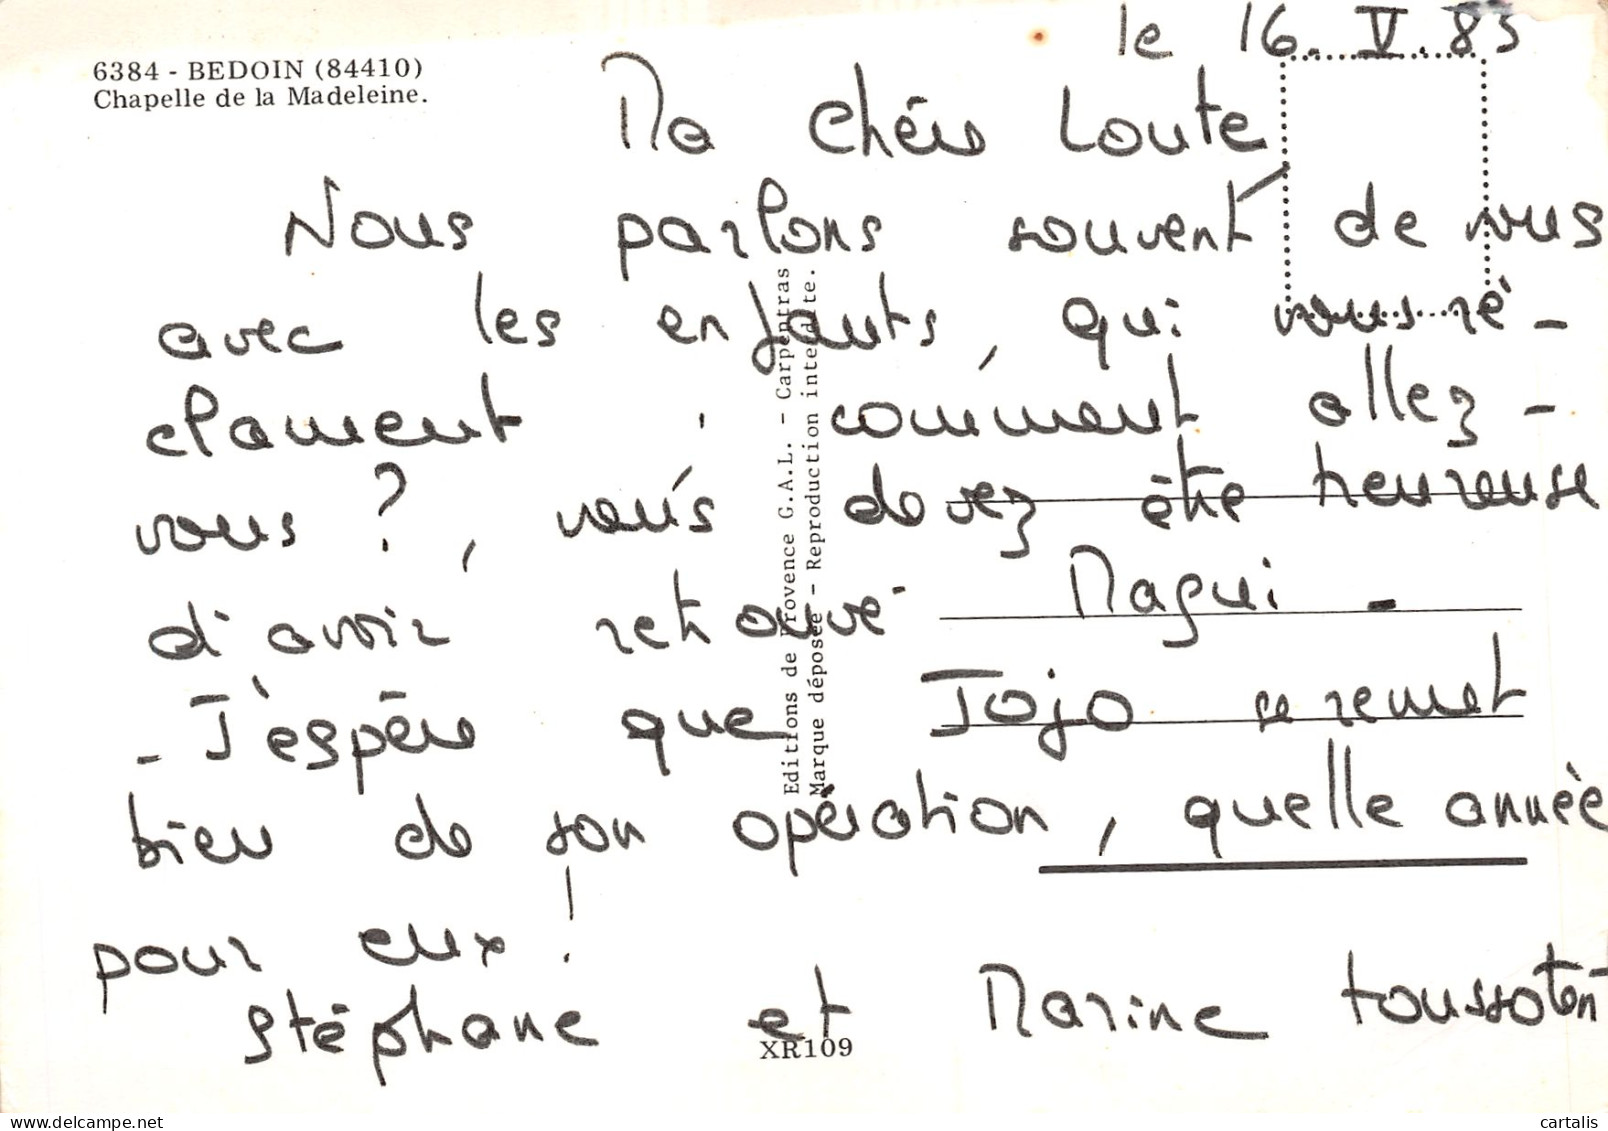 le 16. V. 83
6384 - BEDOIN (84410)
Chapelle de la Madeleine.
Ma chère Loute
Nous parlons souvent de vous
avec les enfants, qui vous ré-
clament. comment allez-
vous ?, vous devez être heureuse
d'avoir retrouvé Magui -
- J'espère que Jojo se remet
bien de son opération, quelle année
pour eux !
Stéphane et Marine toussotent
Editions de Provence G.A.L. - Carpentras
Marque déposée - Reproduction interdite.
XR109
cartalis